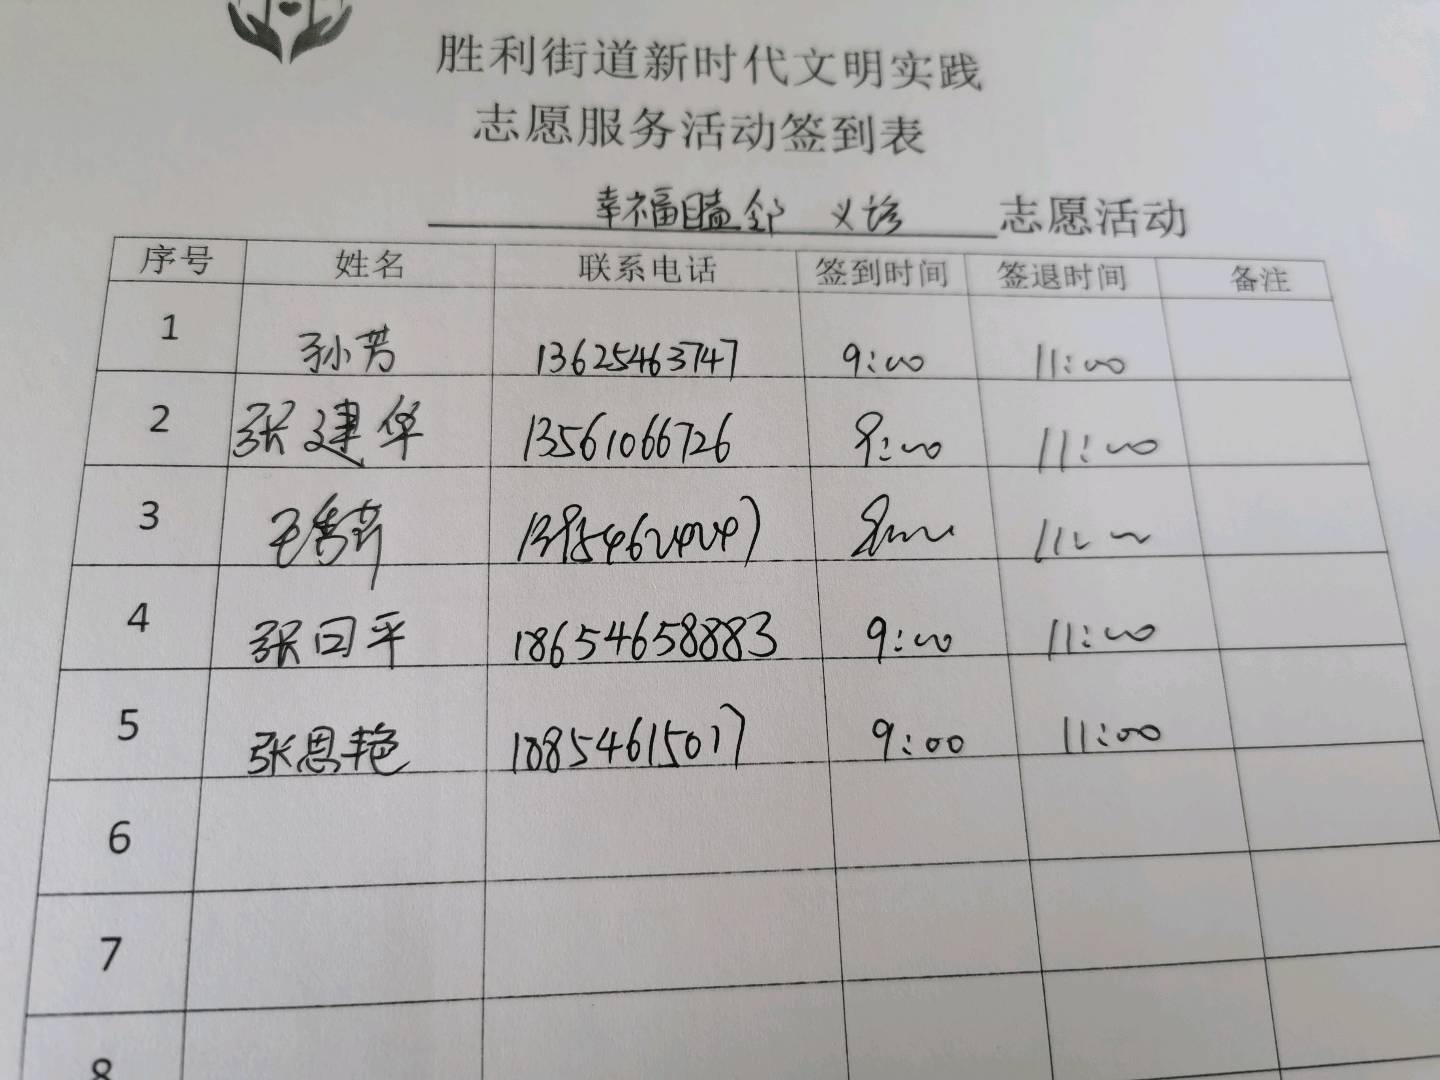 胜利街道新时代文明实践
志愿服务活动签到表
幸福 邻 义诊 志愿活动
序号 姓名 联系电话 签到时间 签退时间 备注
1 孙芳 13625463747 9:00 11:00
2 张建华 13561066726 9:00 11:00
3 11:00
4 张曰平 18654658883 9:00 11:00
5 张思艳 18854615017 9:00 11:00
6
7
8